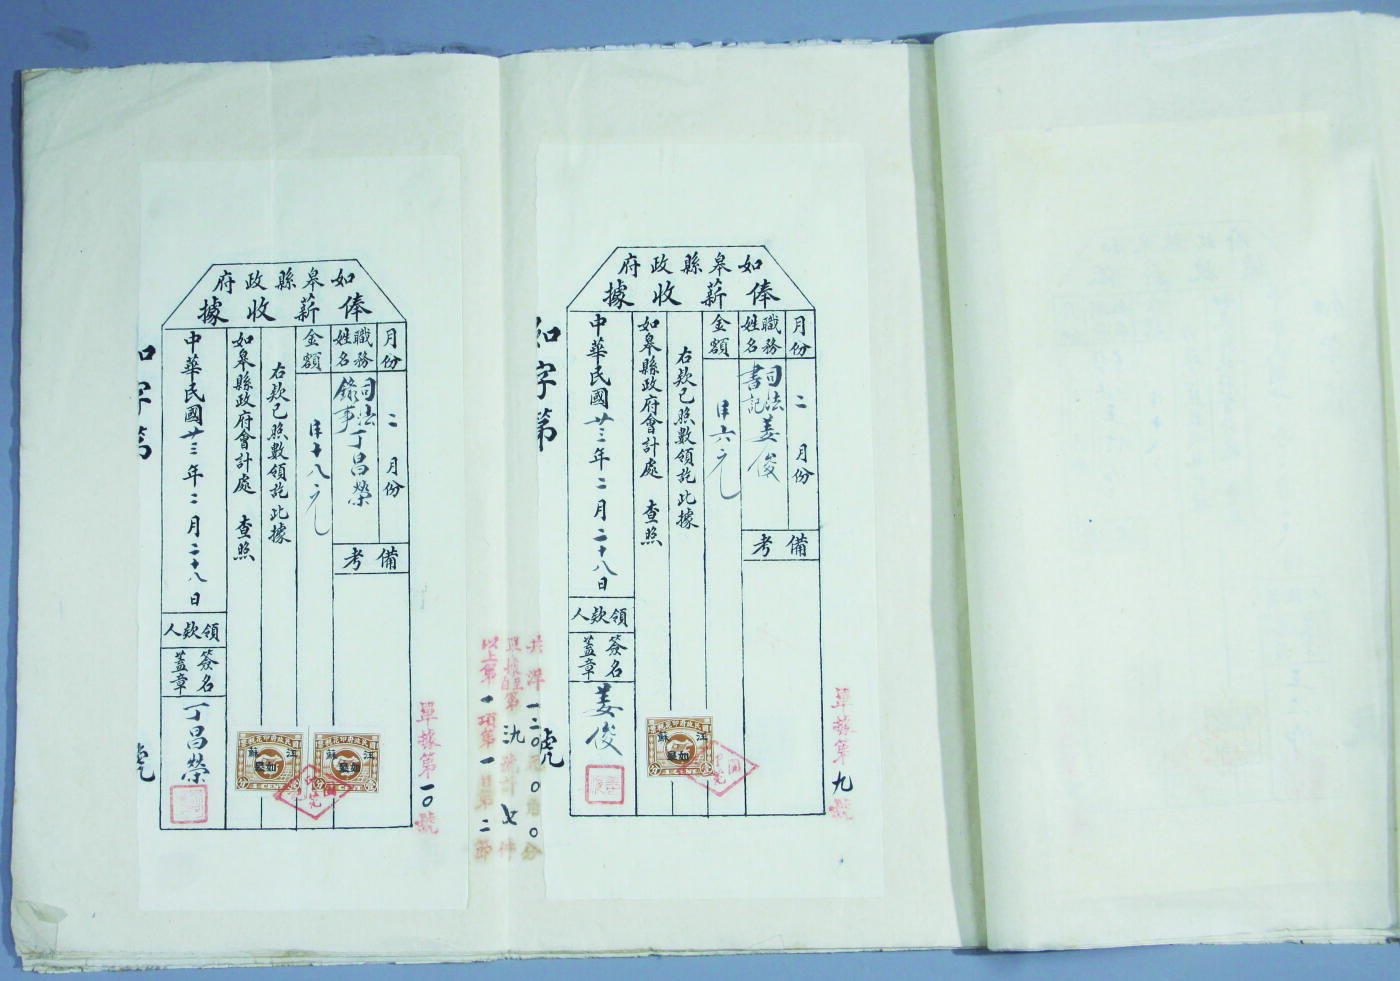 如皋縣政府
俸薪收據
月份
二月份
職務
姓名
司法書記
姜俊
備考
金額
洋六元
右款已照數領訖此據
如皋縣政府會計處 查照
中華民國廿三年二月二十八日
領款人
簽名
蓋章
姜俊
單據第九號
如字第
號
共洋一二0元0角0分
單據自至第三九號計七件
以上第一項第一目第二節
如皋縣政府
俸薪收據
月份
二月份
職務
姓名
司法錄事
丁昌榮
備考
金額
洋十八元
右款已照數領訖此據
如皋縣政府會計處 查照
中華民國廿三年二月二十八日
領款人
簽名
蓋章
丁昌榮
單據第一0號
如字第
號
江蘇
如皋
江蘇
如皋
江蘇
如皋